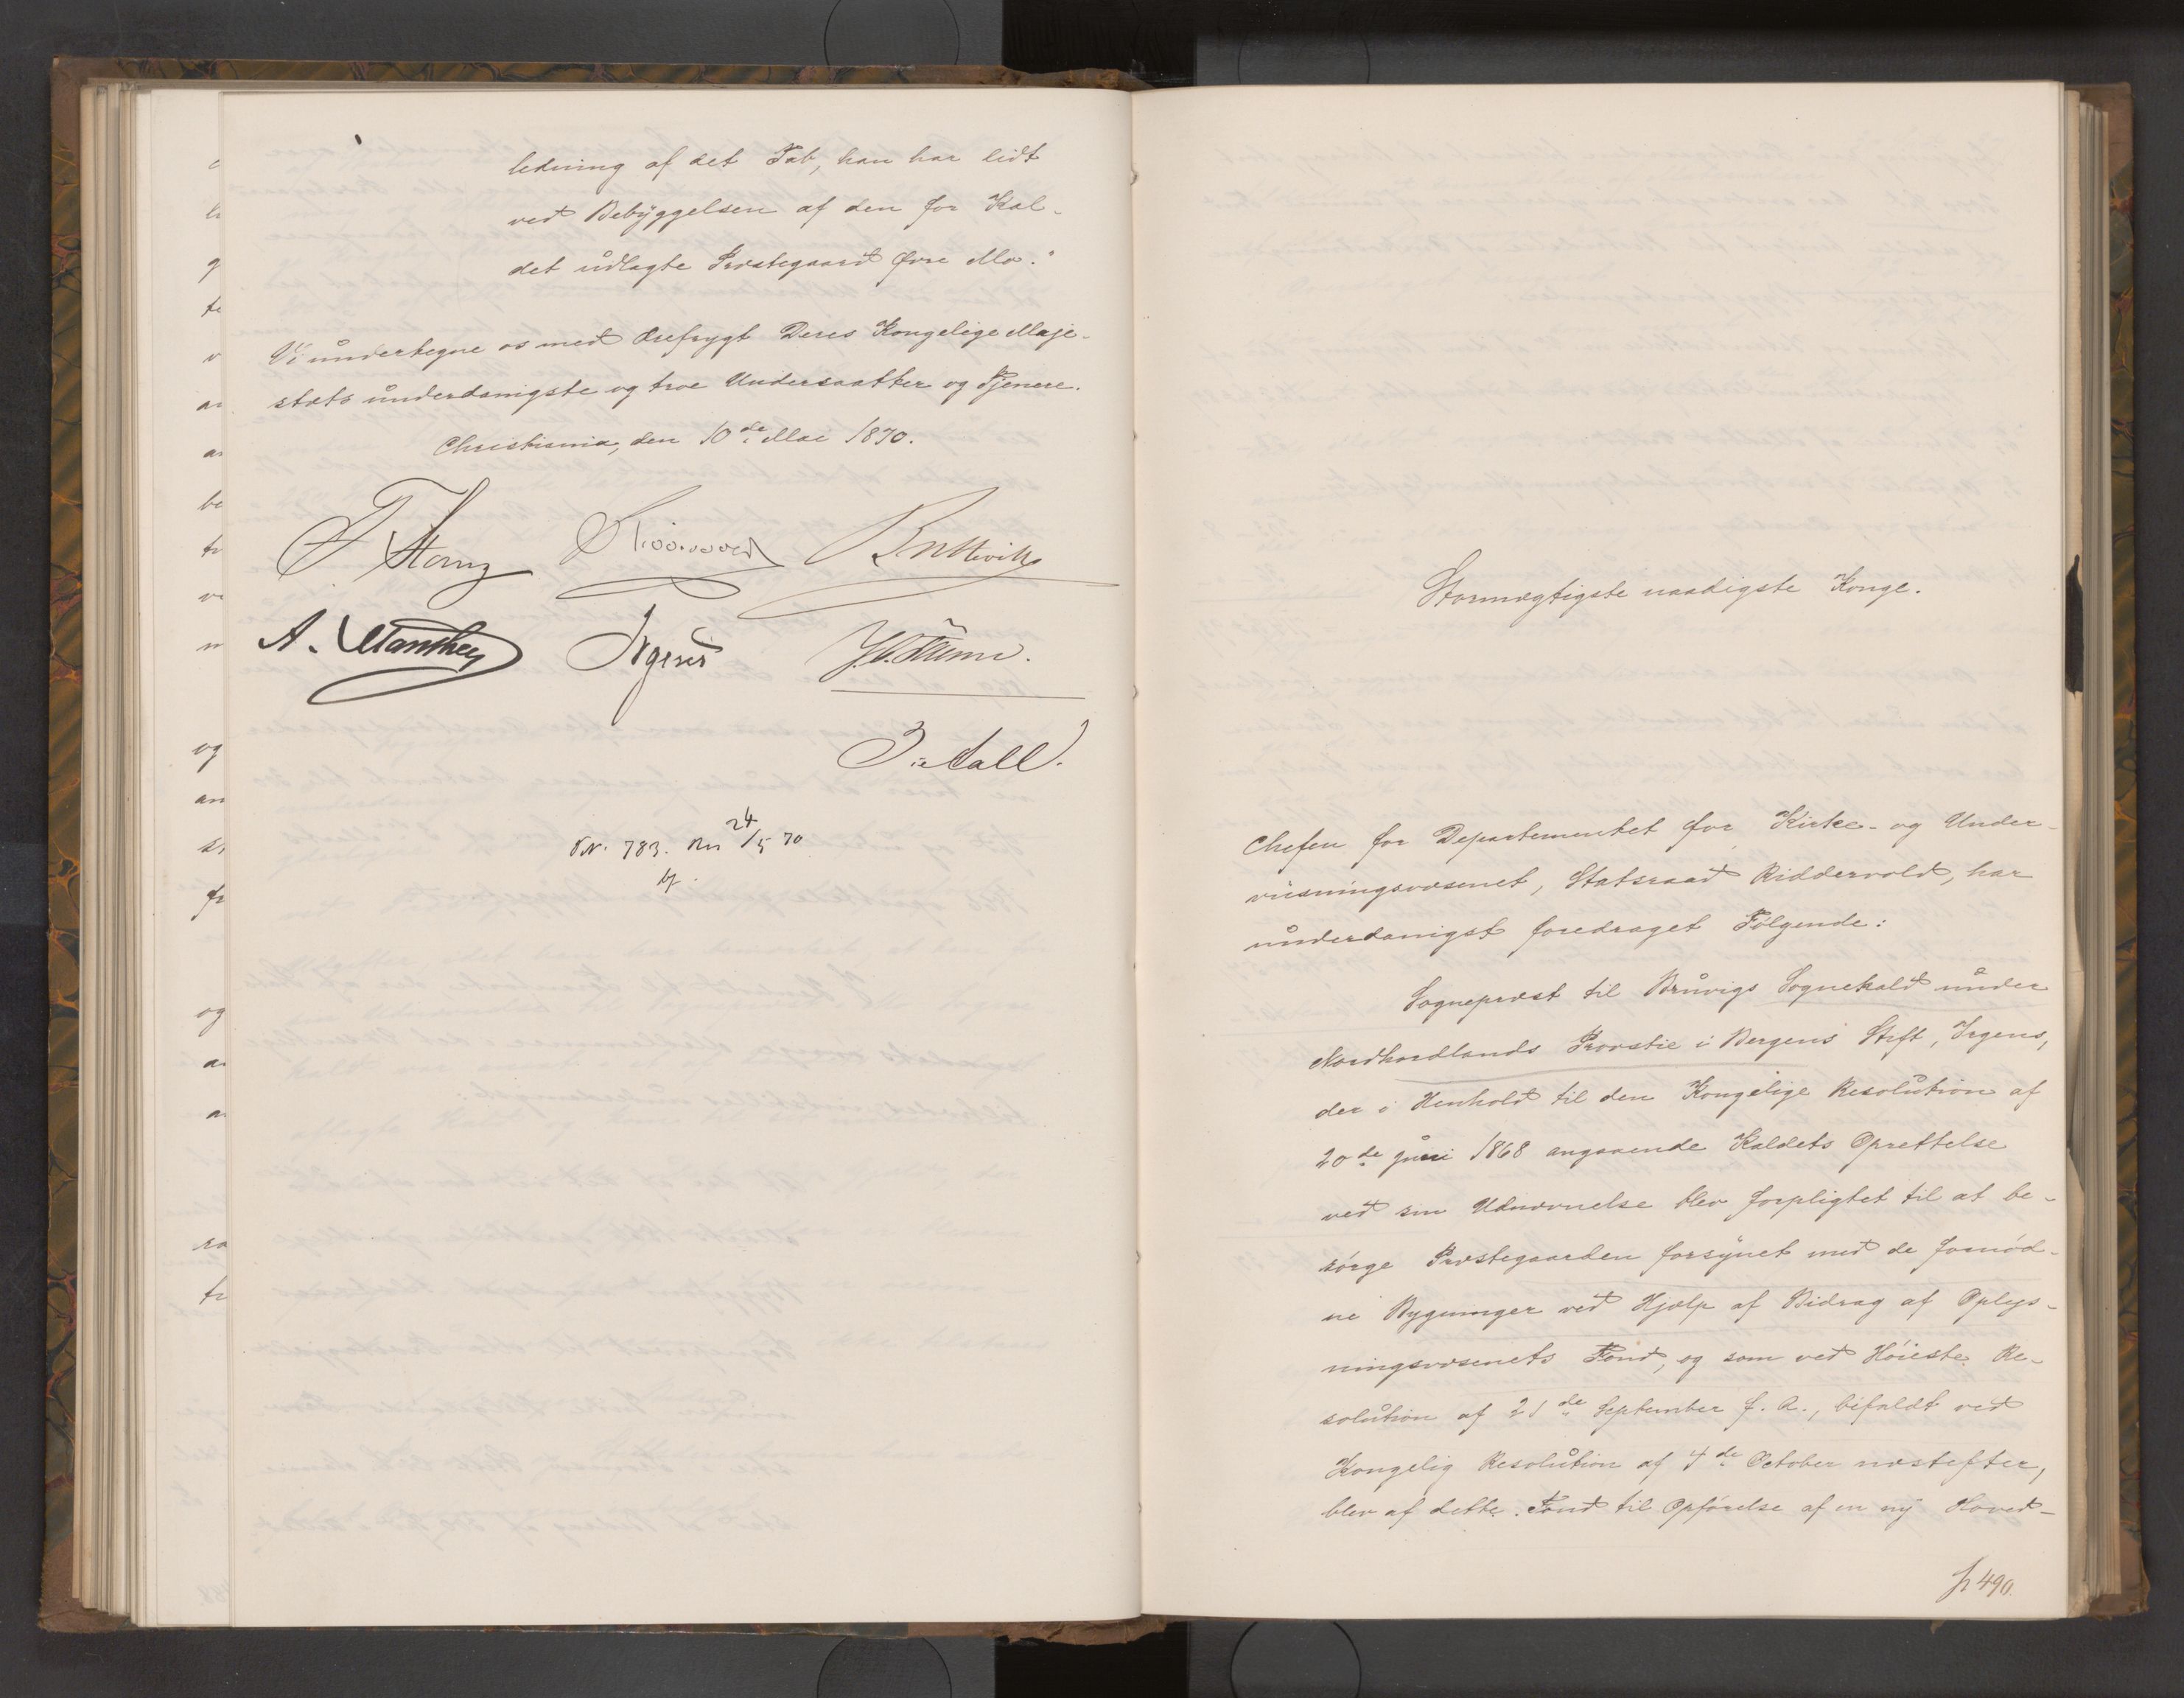 ledning af det Tab, han har lidt
ved Bebyggelsen af den for Kal-
det udlagte Præstegaard Øvre Mo."
Vi undertegne os med Ærefrygt Deres Kongelige Maje-
stæts underdanigste og troe Undersaatter og Tjenere.
Christiania, den 10de Mai 1870.
F Stang Riddervold
A. Manthey Irgens
J. Aall.
783. 24/5 70
Stormægtigste naadigste Konge.
Chefen for Departementet for Kirke- og Under-
viisningsvæsenet, Statsraad Riddervold, har
underdanigst foredraget Følgende:
Sognepræst til Bruvigs Sognekald under
Nordhordlands Provstie i Bergens Stift, Irgens,
der i Henhold til den Kongelige Resolution af
20de Juni 1868 angaaende Kaldets Oprettelse
ved sin Udnævnelse blev forpligtet til at be-
sørge Præstegaarden forsynet med de fornød-
ne Bygninger ved Hjælp af Bidrag af Oplys-
ningsvæsenets Fond, og som ved Høieste Re-
solution af 21de September f. A., bifaldt ved
Kongelig Resolution af 4de October næstefter,
blev af dette Fond til Opførelse af en ny Hoved-
490.